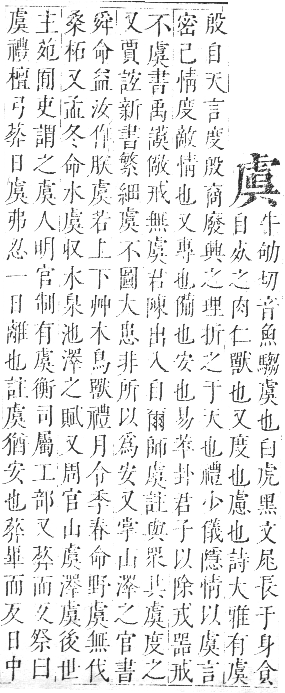 虞
牛劬切音魚騶虞也白虎黑文尾長于身食
自死之肉仁獸也又度也慮也詩大雅有虞
殷自天言度殷商廢興之理折之于天也禮少儀隱情以虞言
密己情度敵情也又專也備也安也易萃卦君子以除戎器戒
不虞書禹謨儆戒無虞君陳出入自爾師虞註與眾共虞度之
又賈誼新書繁細虞不圖大患非所以爲安又掌山澤之官書
舜命益汝作朕虞若上下艸木鳥獸禮月令季春命野虞無伐
桑柘又孟冬命水虞収水泉池澤之賦又周官山虞澤虞後世
主苑囿吏謂之虞人明官制有虞衡司屬工部又葬而又祭曰
虞禮檀弓葬日虞弗忍一日離也註虞猶安也葬畢而反日中